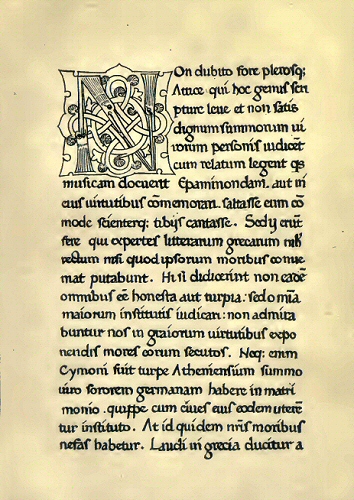 NOn dubito fore plerosq;
Attice qui hoc genus scri
pture leue et non satis
dignum summorum ui
rorum personis iudicēt
cum relatum legent qs
musicam docuerit Epaminondam. aut in
eius virtutibus cōmemorari. saltasse eum cō
mode scienterq; tibijs cantasse. Sed ij erūt
fere qui expertes litterarum grecarum nihˡ
rectum nisi quod ipsorum moribus conue
niat putabunt. Hi si didicerint non eadē
omnibus eē honesta aut turpia. sed omīa
maiorum institutis iudicari: non admira
buntur nos in graiorum uirtutibus expo
nendis mores eorum secutos. Neq; enim
Cymoni fuit turpe Atheniensium summo
uiro sororem germanam habere in matri
monio. quippe cum ciues eius eodem uterēt
tur instituto. At id quidem nr̄is moribus
nefas habetur. Laudi in grecia ducitur a